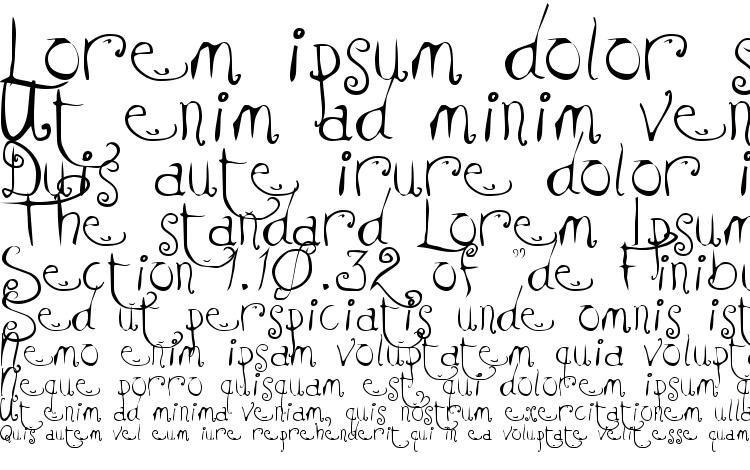 Lorem ipsum dolor s
Ut enim ad minim ven
Duis aute irure dolor i
The standard Lorem Ipsum
Section 1.10.32 of "de Finibu
Sed ut perspiciatis unde omnis ist
Nemo enim ipsam voluptatem quia volupt
Neque porro quisquam est, qui dolorem ipsum q
Ut enim ad minima veniam, quis nostrum exercitationem ulla
Quis autem vel eum iure reprehenderit qui in ea voluptate velit esse quam